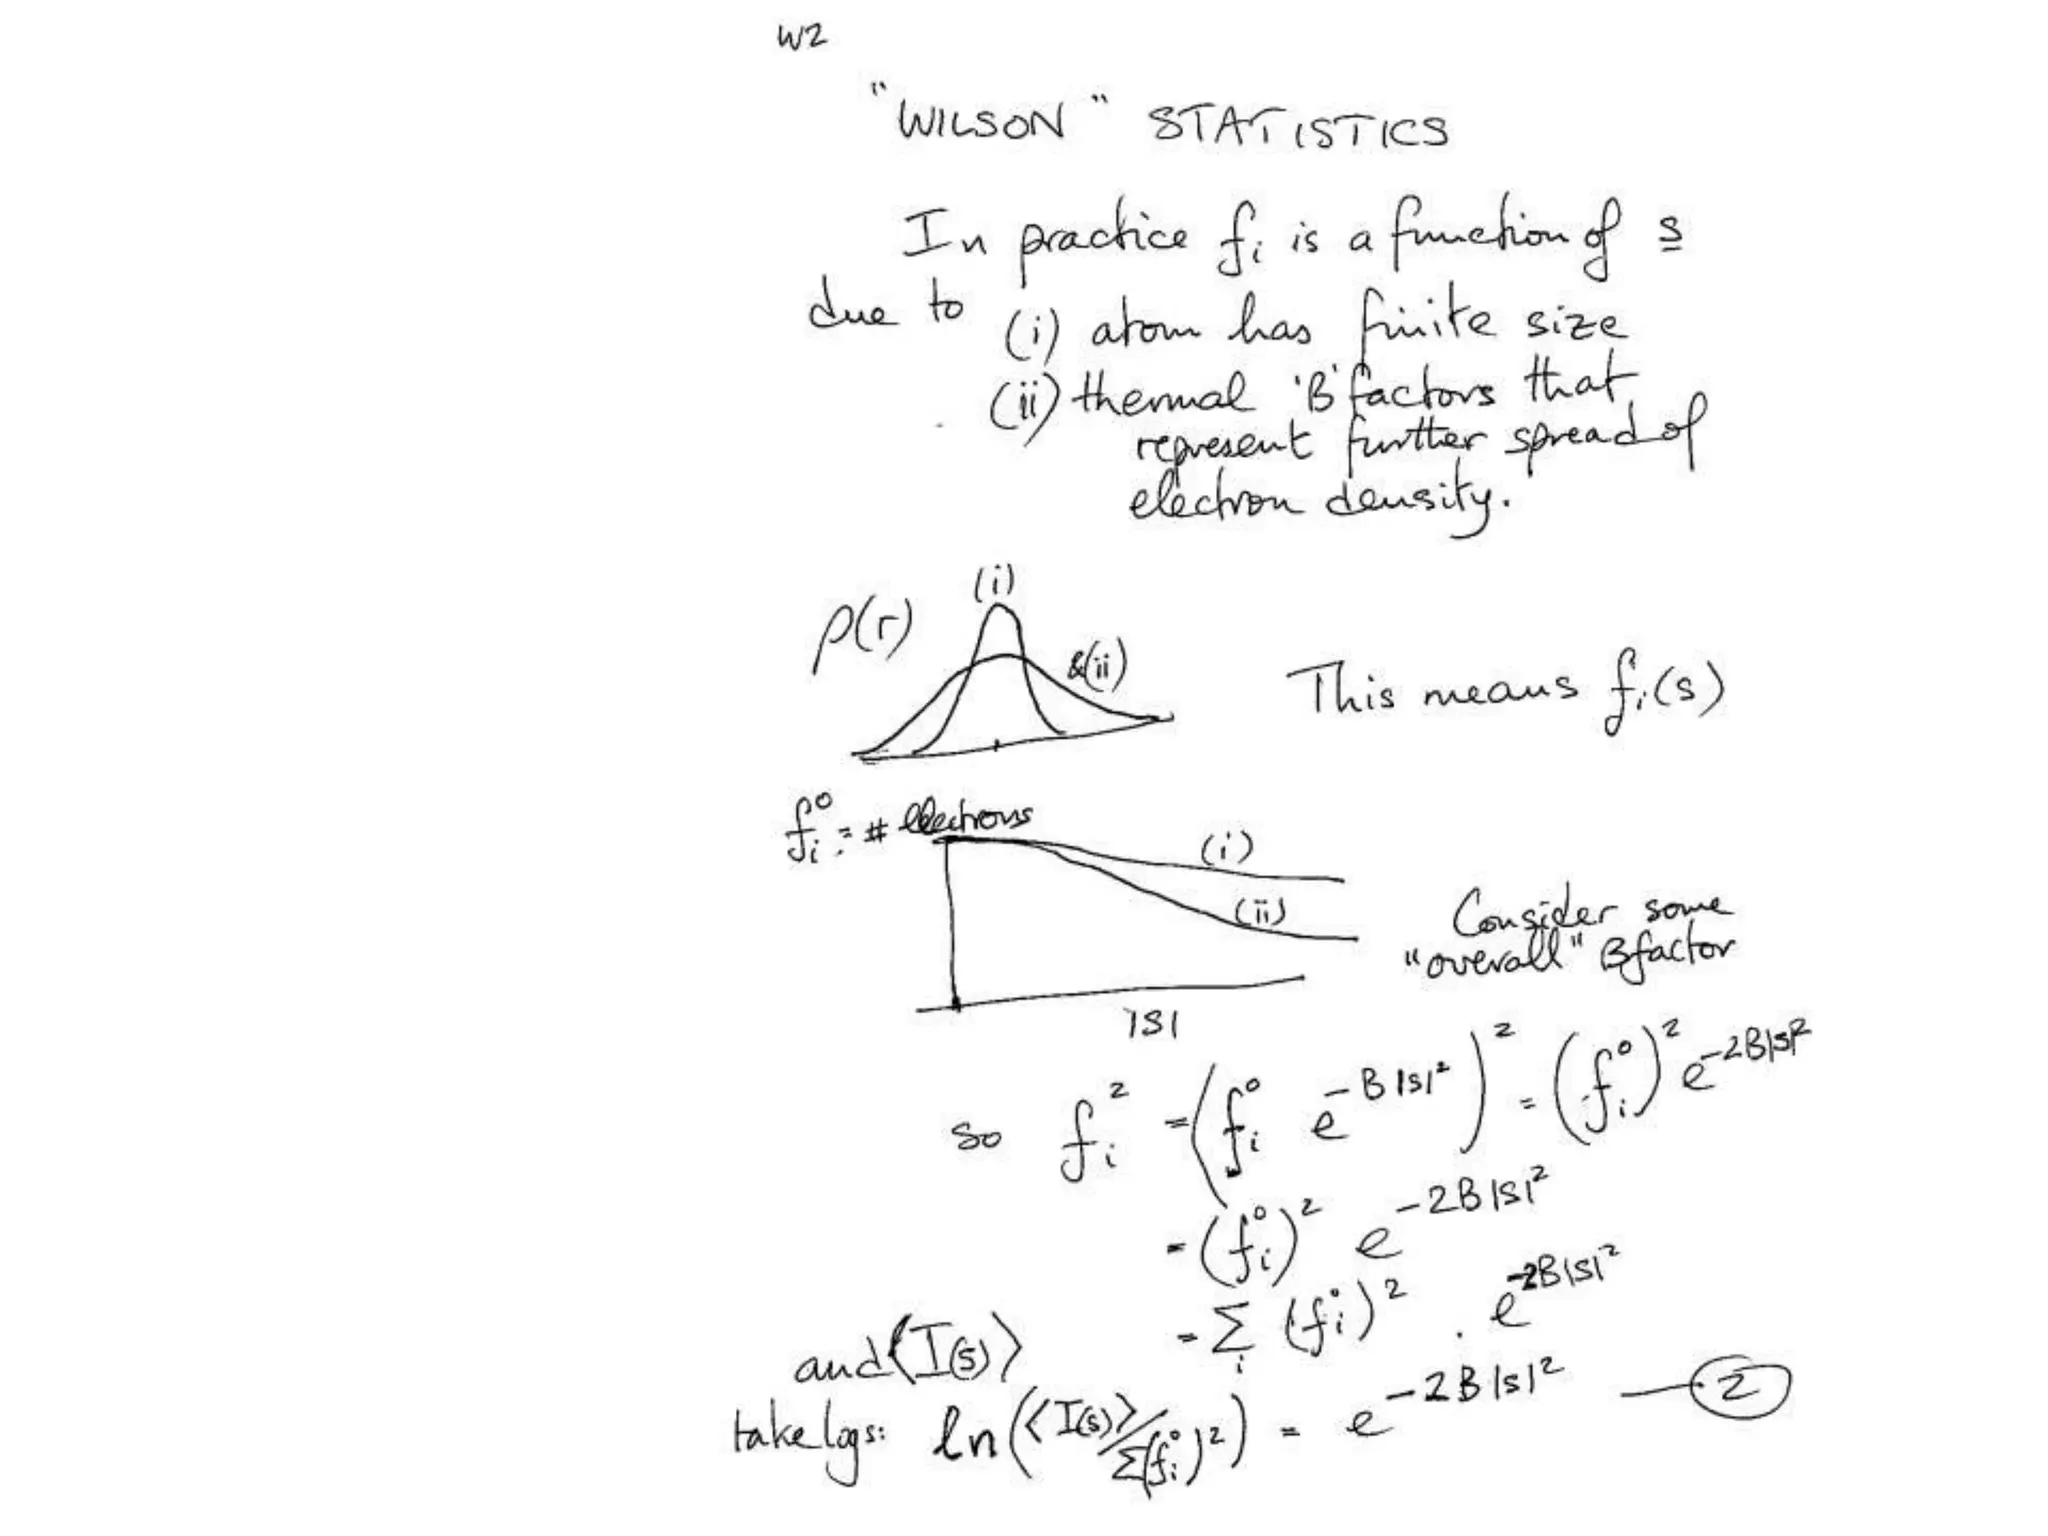 W2
"WILSON" STATISTICS
In practice fᵢ is a function of s
due to (i) atom has finite size
(ii) thermal 'B' factors that
represent further spread of
electron density.
(i)
ρ(r)
&(ii)
This means fᵢ(s)
fᵢ⁰ = # electrons
(i)
(ii)
Consider some
"overall" B factor
|S|
so fᵢ² = (fᵢ⁰ e^{-B|s|²})² = (fᵢ⁰)² e^{-2B|s|²}
= (fᵢ⁰)² e^{-2B|s|²}
and ⟨I(s)⟩ = Σᵢ (fᵢ⁰)² . e^{-2B|s|²}
take logs: ln(⟨I(s)⟩/Σ(fᵢ⁰)²) = e^{-2B|s|²} — 2